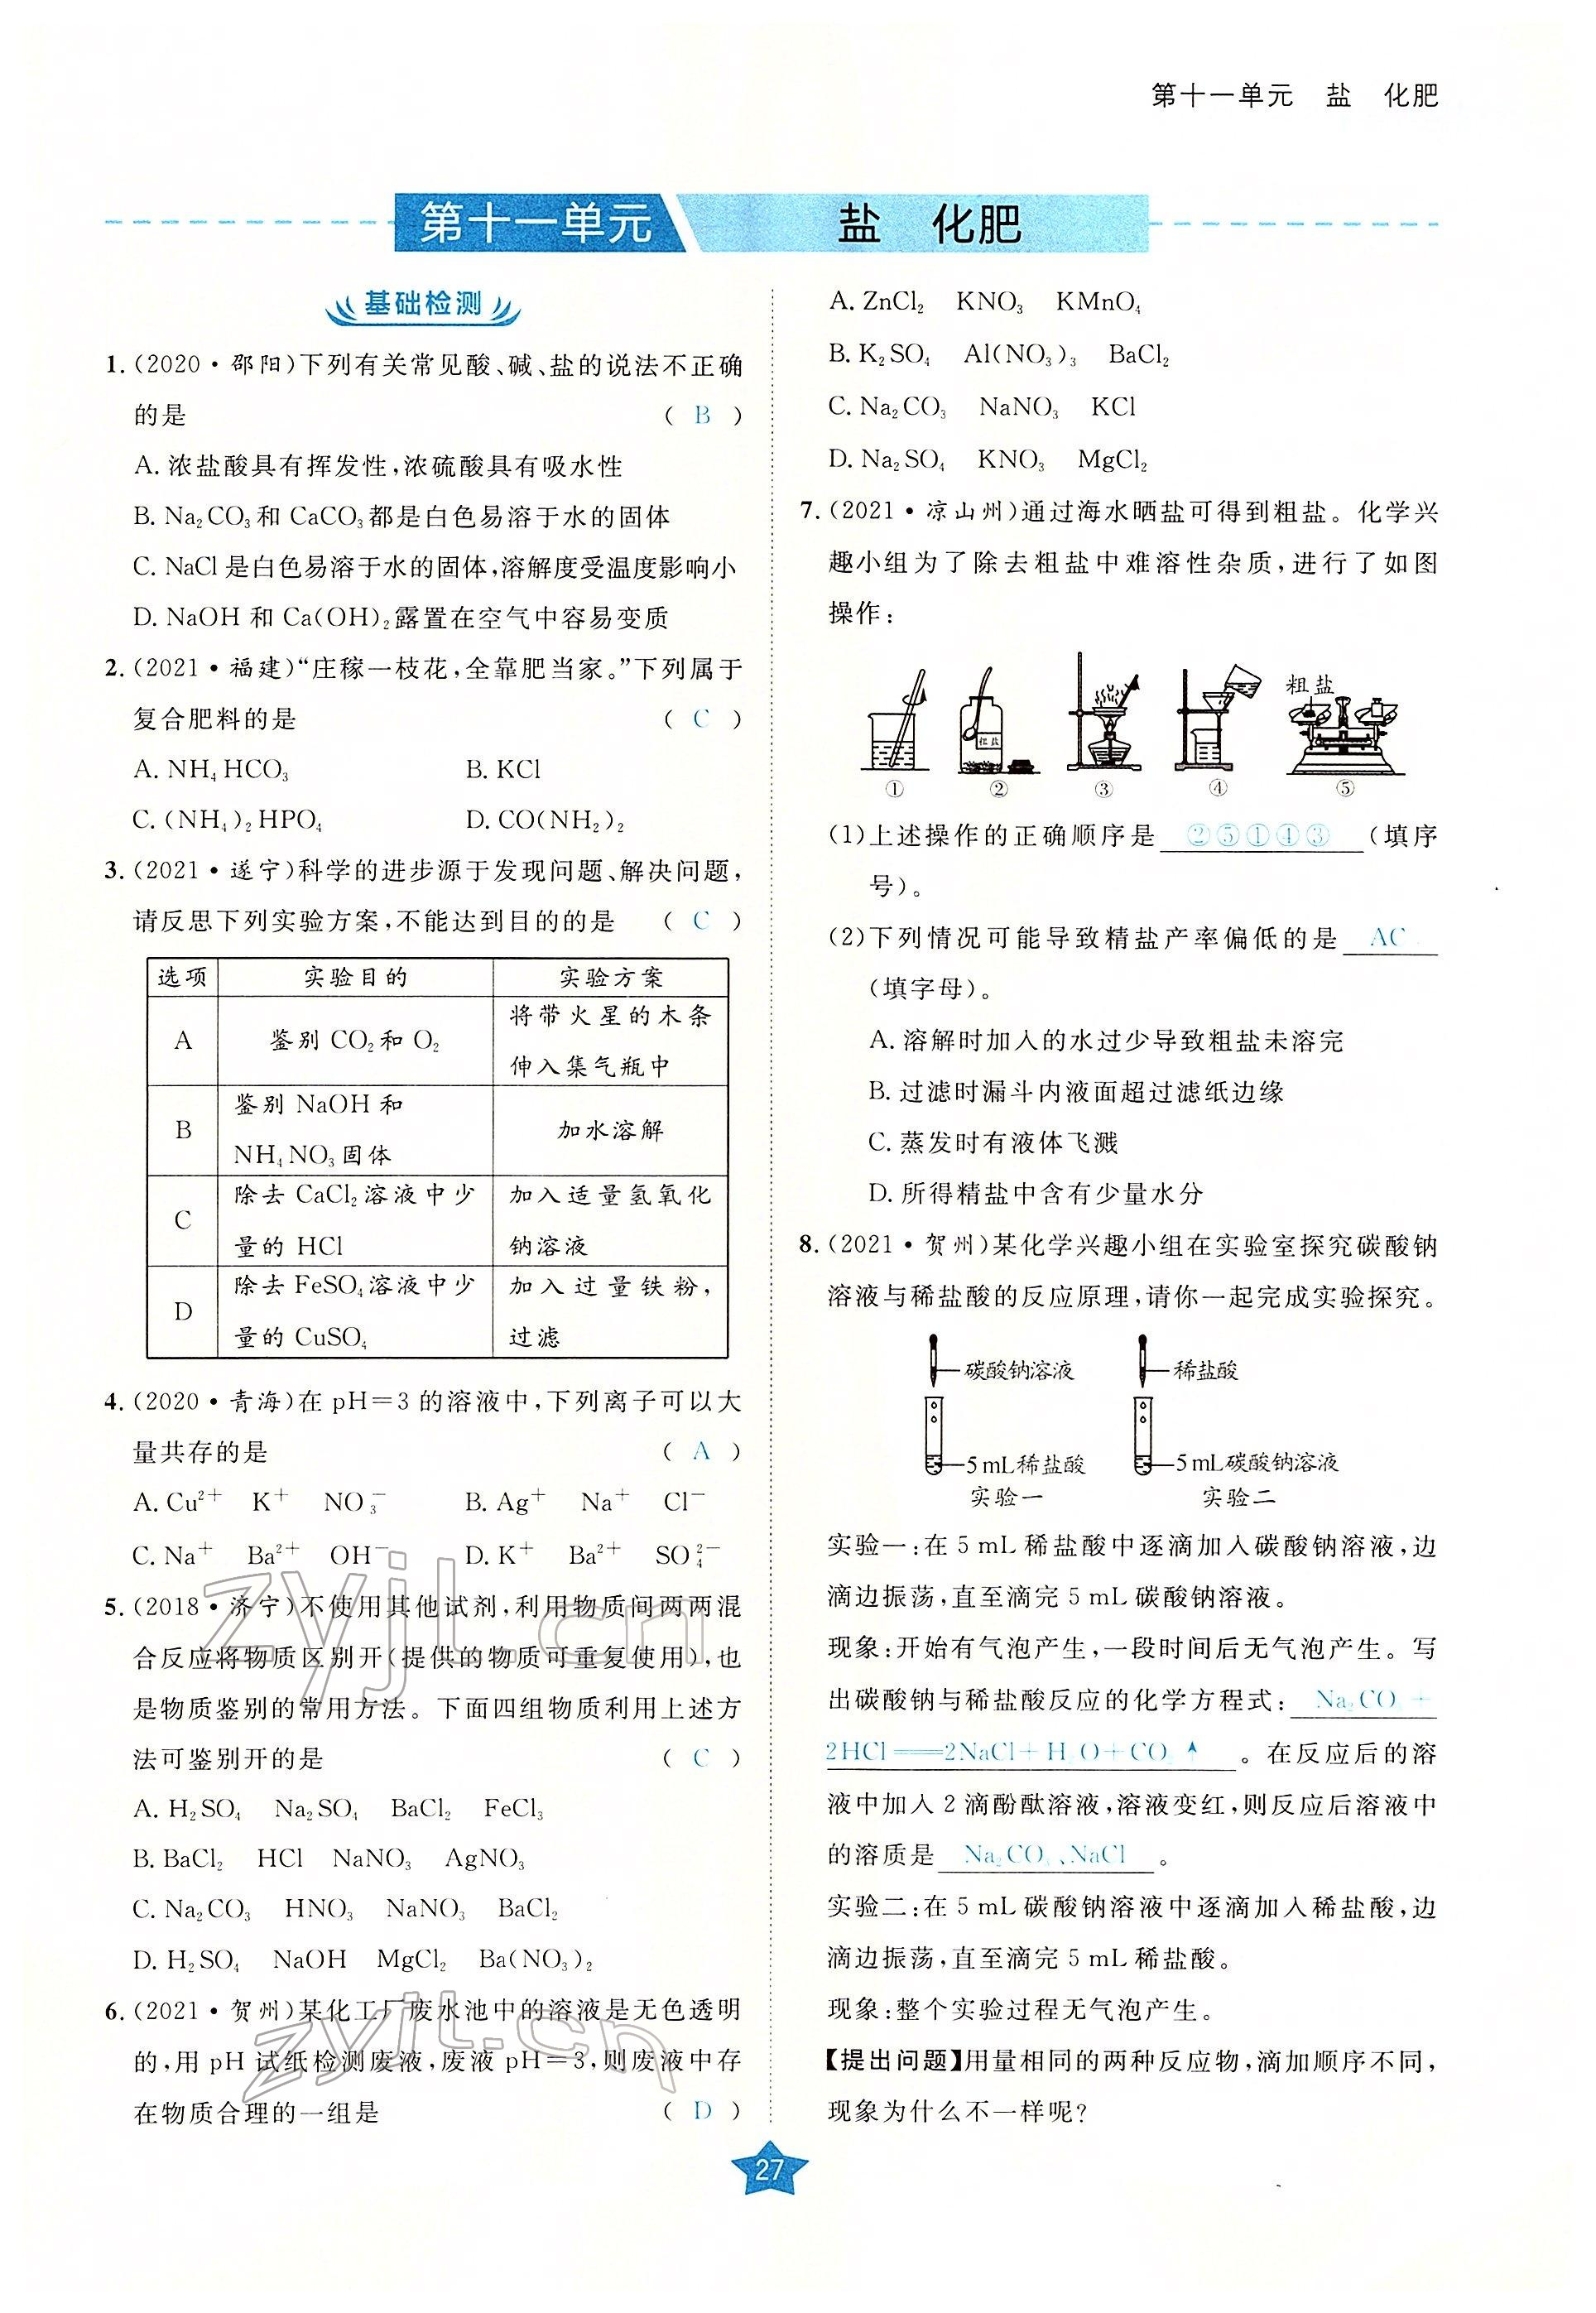 第十一单元 盐 化肥
第十一单元 盐 化肥
基础检测
1.(2020·邵阳)下列有关常见酸、碱、盐的说法不正确
的是 ( B )
A.浓盐酸具有挥发性,浓硫酸具有吸水性
B.Na₂CO₃和CaCO₃都是白色易溶于水的固体
C.NaCl是白色易溶于水的固体,溶解度受温度影响小
D.NaOH和Ca(OH)₂露置在空气中容易变质
2.(2021·福建)“庄稼一枝花,全靠肥当家。”下列属于
复合肥料的是 ( C )
A.NH₄HCO₃ B.KCl
C.(NH₄)₂HPO₄ D.CO(NH₂)₂
3.(2021·遂宁)科学的进步源于发现问题、解决问题,
请反思下列实验方案,不能达到目的的是 ( C )
选项 实验目的 实验方案
A 鉴别CO₂和O₂ 将带火星的木条
伸入集气瓶中
B 鉴别NaOH和
NH₄NO₃固体 加水溶解
C 除去CaCl₂溶液中少 加入适量氢氧化
量的HCl 钠溶液
D 除去FeSO₄溶液中少 加入过量铁粉,
量的CuSO₄ 过滤
4.(2020·青海)在pH=3的溶液中,下列离子可以大
量共存的是 ( A )
A.Cu²⁺ K⁺ NO₃⁻ B.Ag⁺ Na⁺ Cl⁻
C.Na⁺ Ba²⁺ OH⁻ D.K⁺ Ba²⁺ SO₄²⁻
5.(2018·济宁)不使用其他试剂,利用物质间两两混
合反应将物质区别开(提供的物质可重复使用),也
是物质鉴别的常用方法。下面四组物质利用上述方
法可鉴别开的是 ( C )
A.H₂SO₄ Na₂SO₄ BaCl₂ FeCl₃
B.BaCl₂ HCl NaNO₃ AgNO₃
C.Na₂CO₃ HNO₃ NaNO₃ BaCl₂
D.H₂SO₄ NaOH MgCl₂ Ba(NO₃)₂
6.(2021·贺州)某化工厂废水池中的溶液是无色透明
的,用pH试纸检测废液,废液pH=3,则废液中存
在物质合理的一组是 ( D )
A.ZnCl₂ KNO₃ KMnO₄
B.K₂SO₄ Al(NO₃)₃ BaCl₂
C.Na₂CO₃ NaNO₃ KCl
D.Na₂SO₄ KNO₃ MgCl₂
7.(2021·凉山州)通过海水晒盐可得到粗盐。化学兴
趣小组为了除去粗盐中难溶性杂质,进行了如图
操作:
粗盐
粗盐
① ② ③ ④ ⑤
(1)上述操作的正确顺序是 ②⑤①④③ (填序
号)。
(2)下列情况可能导致精盐产率偏低的是 AC
(填字母)。
A.溶解时加入的水过少导致粗盐未溶完
B.过滤时漏斗内液面超过滤纸边缘
C.蒸发时有液体飞溅
D.所得精盐中含有少量水分
8.(2021·贺州)某化学兴趣小组在实验室探究碳酸钠
溶液与稀盐酸的反应原理,请你一起完成实验探究。
碳酸钠溶液 稀盐酸
5 mL稀盐酸 5 mL碳酸钠溶液
实验一 实验二
实验一:在5 mL稀盐酸中逐滴加入碳酸钠溶液,边
滴边振荡,直至滴完5 mL碳酸钠溶液。
现象:开始有气泡产生,一段时间后无气泡产生。写
出碳酸钠与稀盐酸反应的化学方程式: Na₂CO₃+
2HCl══2NaCl+H₂O+CO₂↑ 。在反应后的溶
液中加入2滴酚酞溶液,溶液变红,则反应后溶液中
的溶质是 Na₂CO₃、NaCl 。
实验二:在5 mL碳酸钠溶液中逐滴加入稀盐酸,边
滴边振荡,直至滴完5 mL稀盐酸。
现象:整个实验过程无气泡产生。
【提出问题】用量相同的两种反应物,滴加顺序不同,
现象为什么不一样呢?
zyjl.cn
zyjl.cn
27